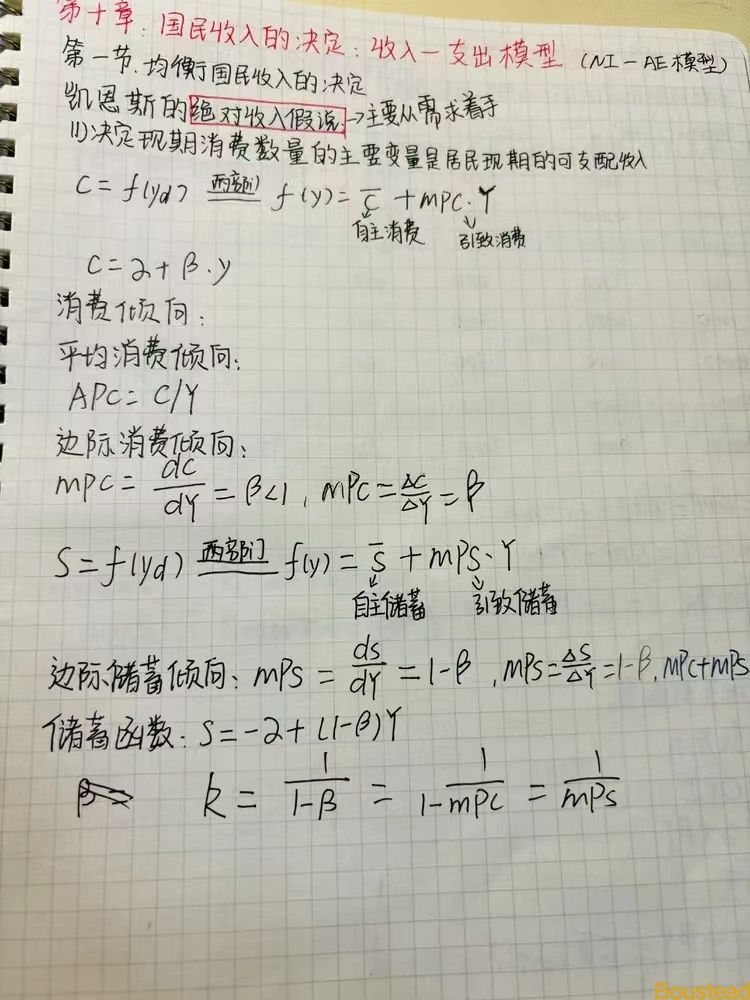 第十章：国民收入的决定：收入一支出模型 (NI-AE模型)
第一节.均衡国民收入的决定
凯恩斯的绝对收入假说→主要从需求着手
(1)决定现期消费数量的主要变量是居民现期的可支配收入
C=f(yd) 两部门 f(y)=C̅+mpc·Y
自主消费 引致消费
C=α+β·y
消费倾向：
平均消费倾向：
APC=C/Y
边际消费倾向：
mpc=dc/dY=β<1, mpc=ΔC/ΔY=β
S=f(yd) 两部门 f(y)=S̅+mps·Y
自主储蓄 引致储蓄
边际储蓄倾向：mps=ds/dY=1-β, mps=ΔS/ΔY=1-β, mpc+mps
储蓄函数：S=-α+(1-β)Y
k=1/(1-β)=1/(1-mpc)=1/mps
Boustead